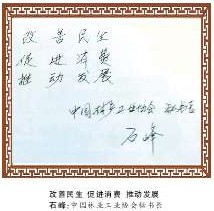 改善民生
促进消费
推动发展
中国林产工业协会 秘书长
石峰
改善民生 促进消费 推动发展
石峰:中国林业工业协会秘书长